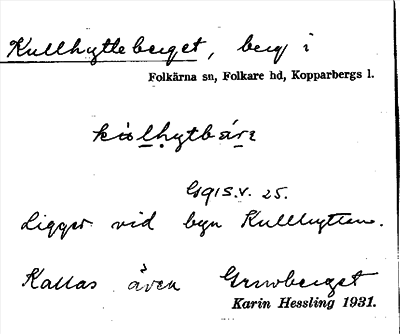 Kullhytteberget, berg i
Folkärna sn, Folkare hd, Kopparbergs l.
G91 S.V. 25.
Ligger vid byn Kullhyttan.
Kallas även Gruvberget
Karin Hessling 1931.